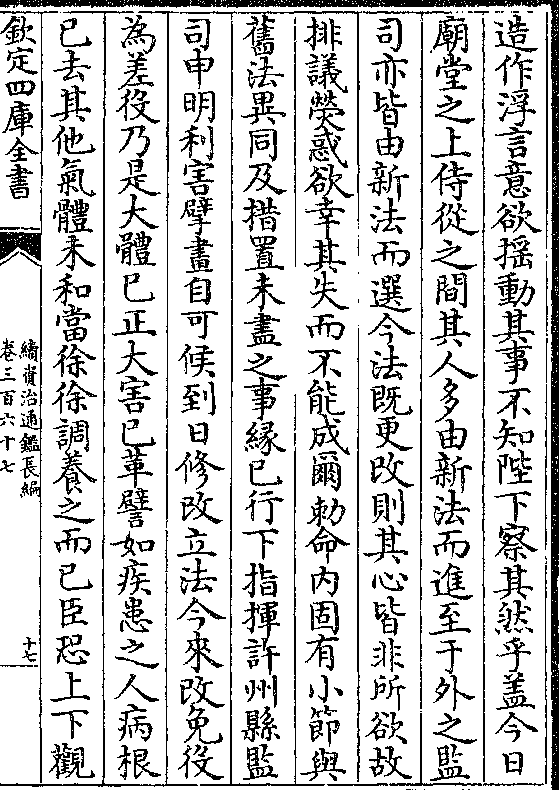 造作浮言意欲揺動其事不知陛下察其然乎盖今日
廟堂之上侍從之間其人多由新法而進至于外之監
司亦皆由新法而選今法既更改則其心皆非所欲故
排議熒惑欲幸其失而不能成爾勅命内固有小節與
舊法異同及措置未盡之事縁已行下指揮許州縣監
司申明利害擘畫自可候到日修改立法今來改免役
為差役乃是大體已正大害已革譬如疾患之人病根
已去其他氣體未和當徐徐調養之而已臣恐上下觀
欽定四庫全書
續資治通鑑長編
卷三百六十七
十七